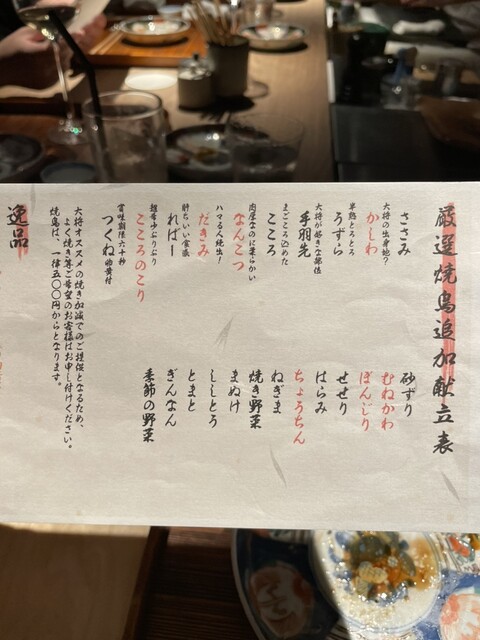 厳選焼鳥追加献立表
ささみ
大将の出身地?
かしわ
半熟とろとろ
うずら
大将が好きな部位
手羽先
まごころ込めた
こころ
肉屋なのに柔らかい
なんこつ
ハマる人続出!
だきみ
肝ちいい食感
ればー
超希少ぷりぷり
こころのこり
賞味期限六十秒
つくね 卵黄付
砂ずり
むねかわ
ぼんじり
せせり
はらみ
ちょうちん
ねぎま
焼き野菜
まぬけ
ししとう
とまと
ぎんなん
季節の野菜
大将オススメの焼き加減でのご提供となるため、
よく焼き等ご希望のお客様はお申し付けください。
焼鳥は、一律五〇〇円からとなります。
逸品